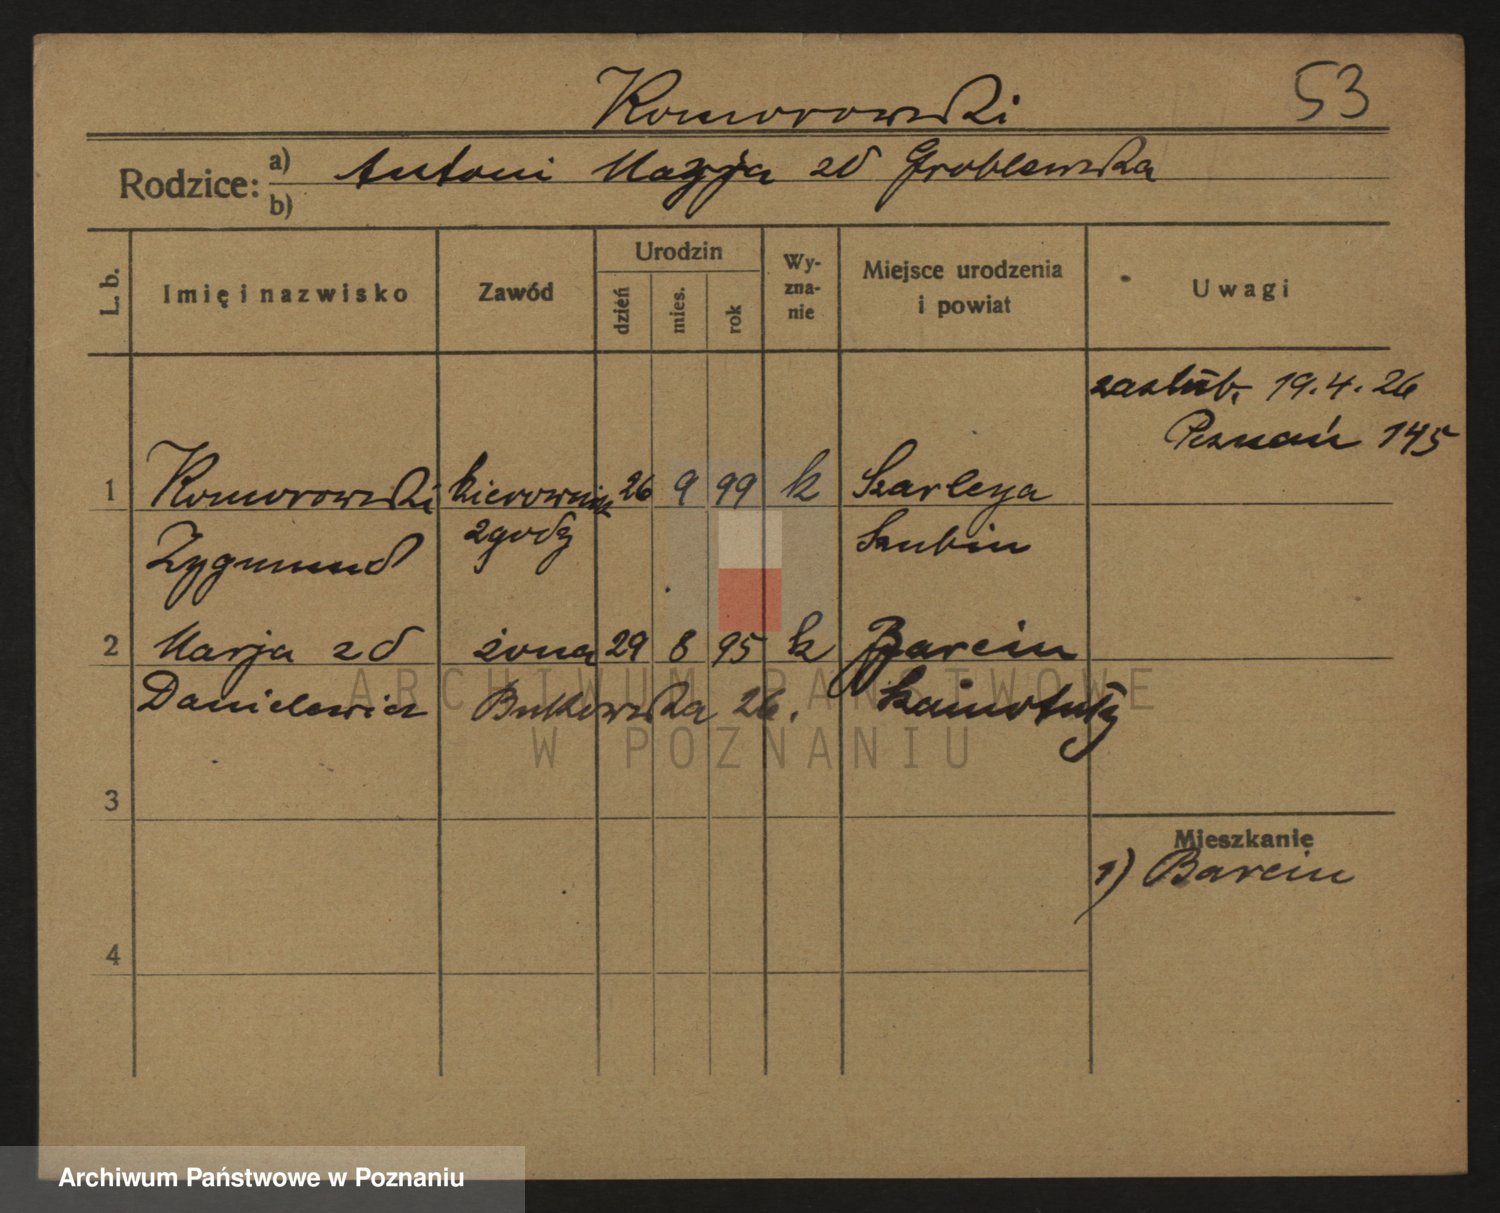 Komorowski 53
Rodzice: a) Antoni Marja zd Groblewska
b)
L. b. Imię i nazwisko Zawód Urodzin Wy-zna-nie Miejsce urodzenia i powiat Uwagi
dzień mies. rok
zaślub. 19.4.26
Poznań 145
1 Komorowski kierownik 26 9 99 k Szarleya
Zygmund zgody Szubin
2 Marja zd żona 29 8 95 k Barcin
Danielewicz Bukowska 26.
3
Mieszkanie
1) Barcin
4
ARCHIWUM PAŃSTWOWE
W POZNANIU
Archiwum Państwowe w Poznaniu